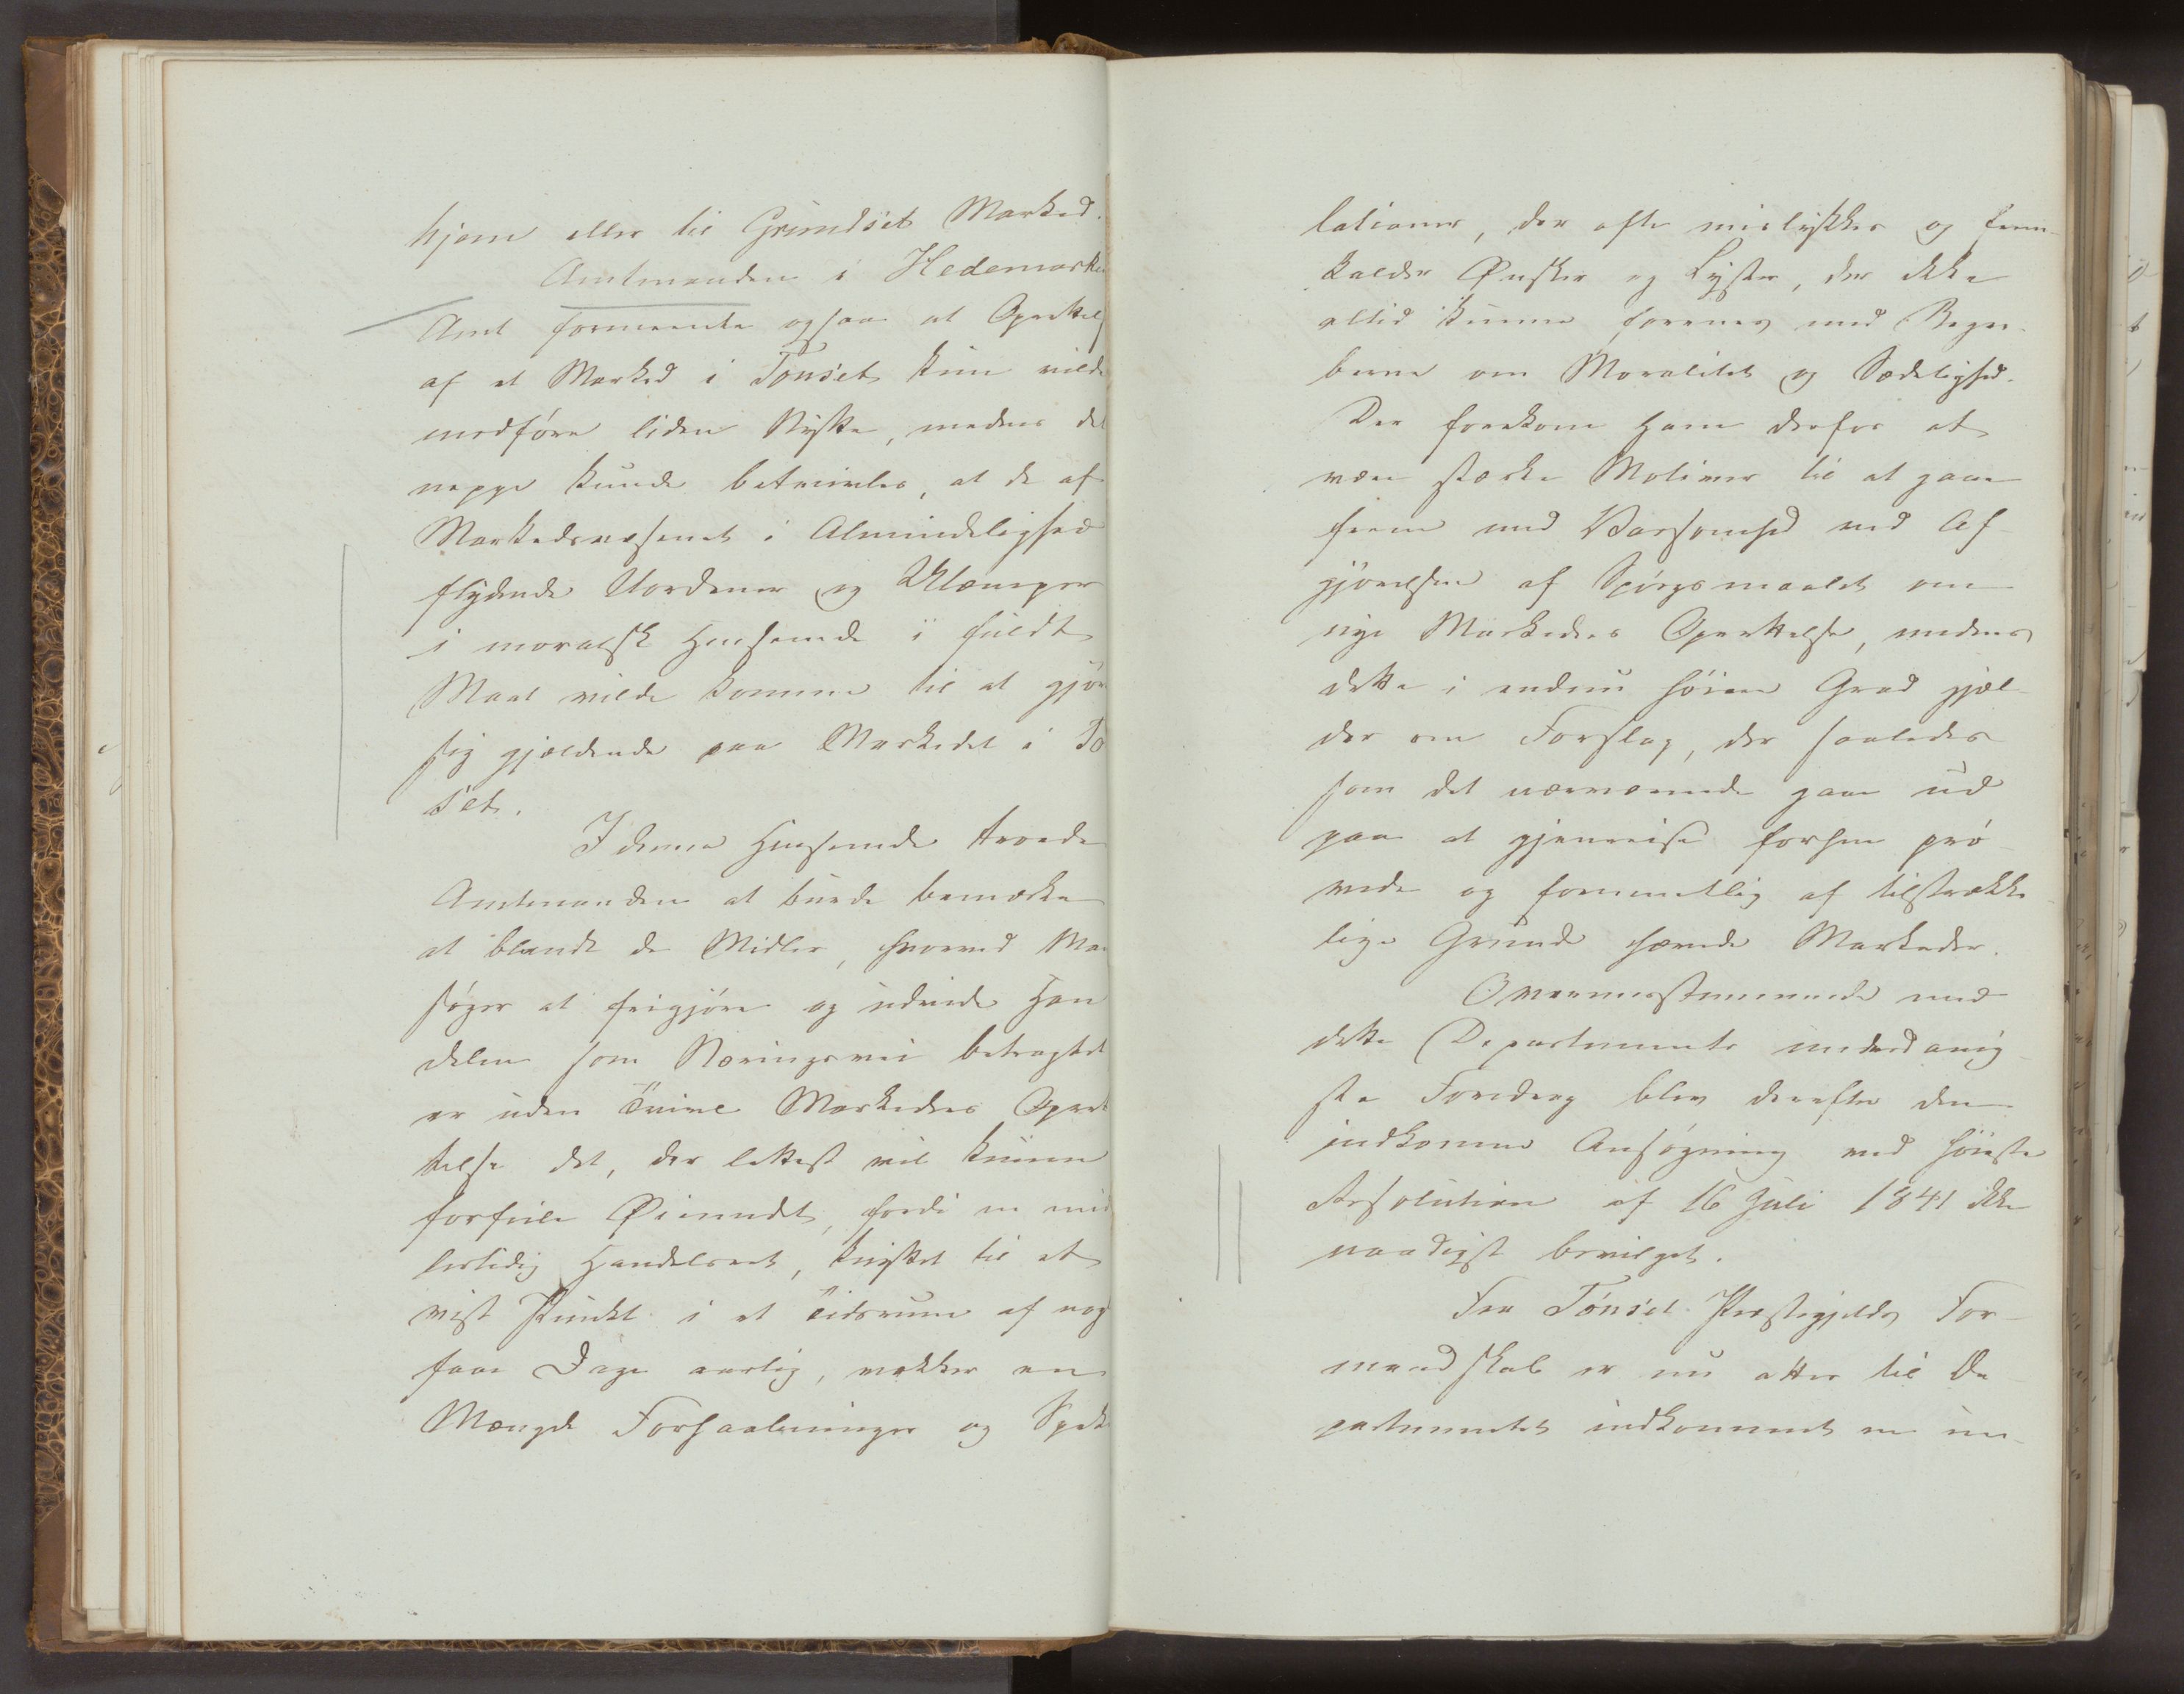 hjem eller til Grundset Marked.
Amtmanden i Hedemarken
Amt formeente ogsaa at Oprettelse
af et Marked i Tønset kun vilde
medføre liden Nytte, medens det
neppe kunde betvivles, at de af
Markedsvæsenet i Almindelighed
flydende Uordener og Ulæmper
i moralsk Henseende i fuldt
Maal vilde komme til at gjøre
sig gjældende paa Markedet i Tø
set.
I denne Henseende troede
Amtmanden at burde bemærke
at blandt de Midler, hvorved Man
søger at frigjøre og udvide Han
delen som Næringsvei betragtet
er uden Tvivl Markeders Opret
telse det, der lettest vil kunne
forfeile Øiemedet, fordi en mid
lertidig Handelsret, knyttet til et
vist Punkt i et Tidsrum af nog
faae Dage aarlig, vækker en
Mængde Forhaabninger og Speku
lationer, der ofte mislykkes og frem-
kalder Ønsker og Lyster, der ikke
altid kunne forenes med Begre-
berne om Moralitet og Sædelighed.
Der forekom ham derfor at
være stærke Motiver til at gaae
frem med Varsomhed ved Af-
gjørelsen af Spørgsmaalet om
nye Markeders Oprettelse, medens
dette i endnu høiere Grad gjæl-
der om Forslag, der saaledes
som det nærværende gaae ud
paa at gjenreise forhen prø-
vede og formentlig af tilstrække-
lige Grunde hævede Markeder.
Overeensstemmende med
dette Departements underdanig-
ste Foredrag blev derefter den
indkomne Ansøgning ved høieste
Resolution af 16 Juli 1841 ikke
naadigst bevilget.
Fra Tønset Præstegjelds For-
mandskab er nu atter til De-
partementet indkommet en un-